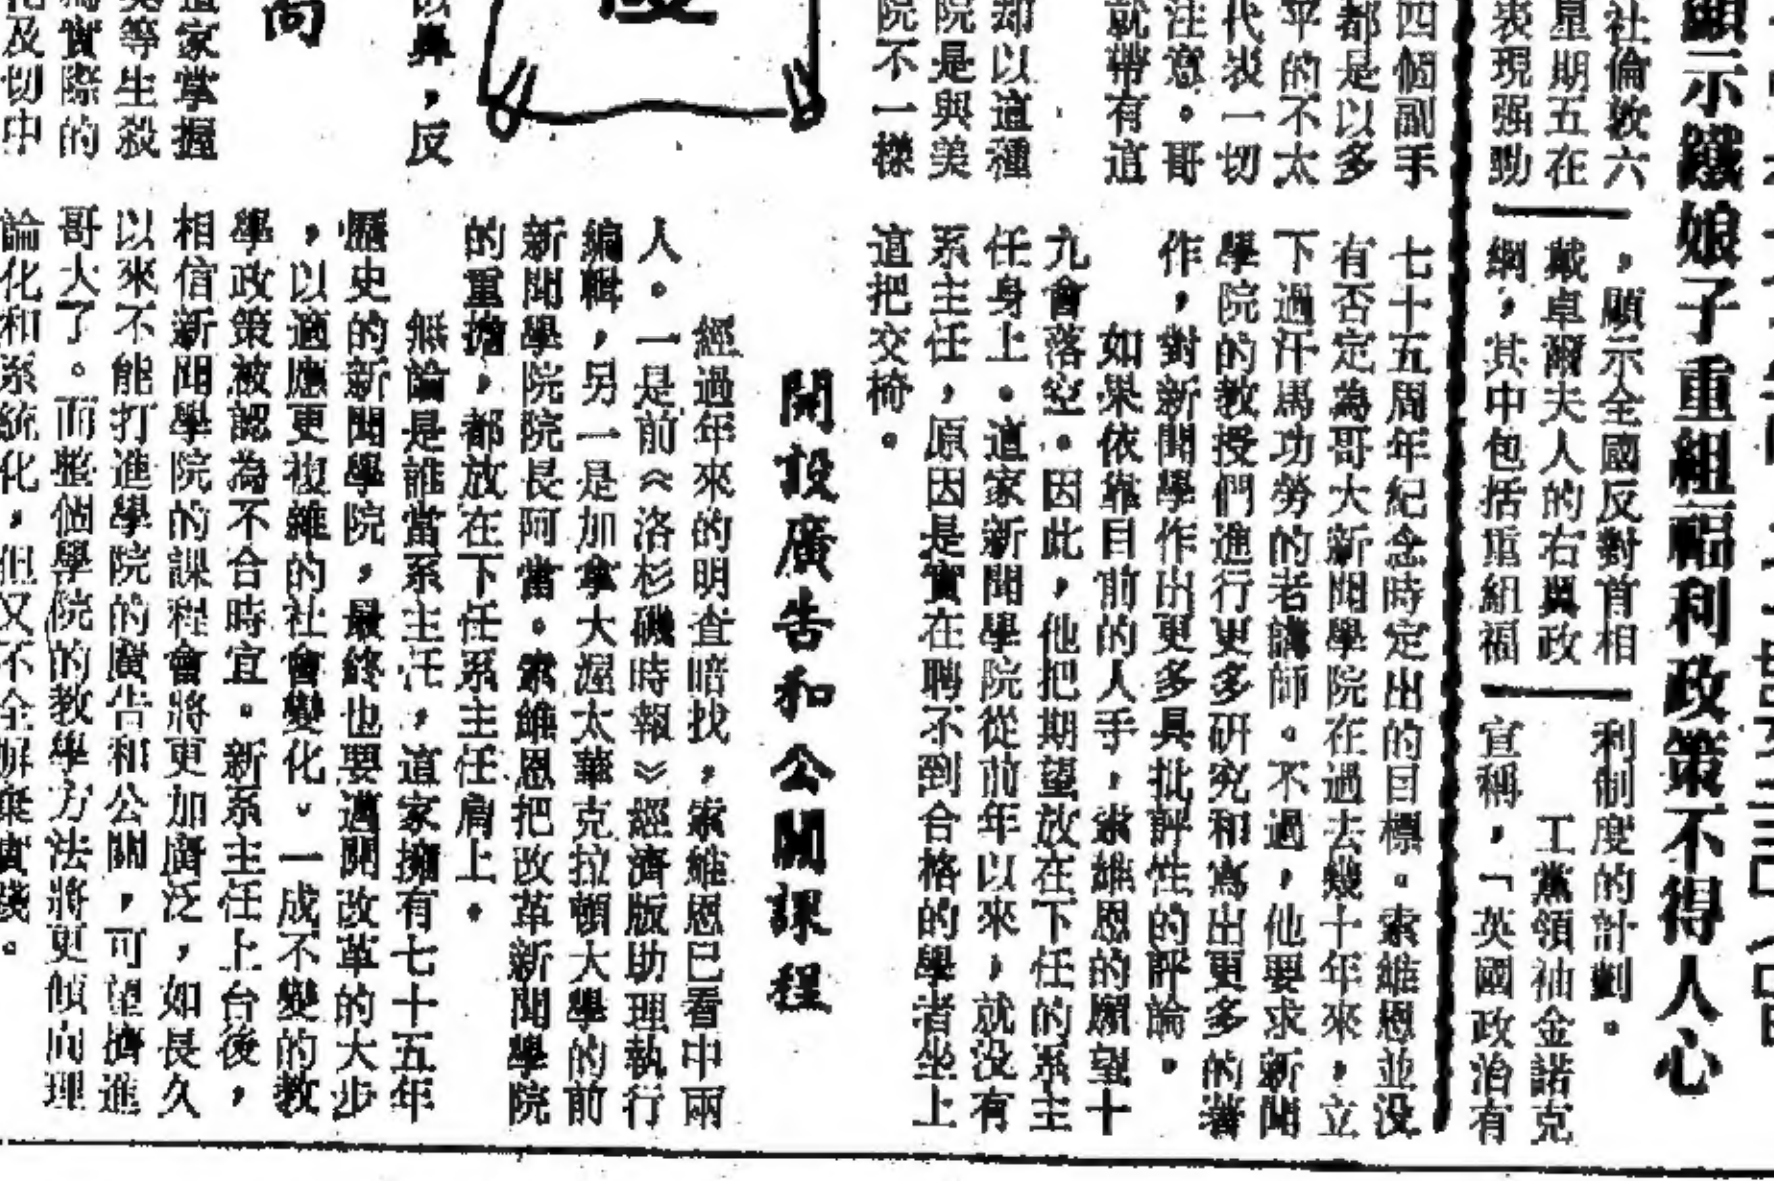 顯示鐵娘子重組福利政策不得人心
社倫敦六
星期五在
表現强勁
,顯示全國反對首相
戴卓爾夫人的右翼政
綱,其中包括重組福
利制度的計劃。
工黨領袖金諾克
宣稱,「英國政治有
四個副手
都是以多
平的不太
代表一切
注意。哥
就帶有這
却以這種
院是與美
院不一樣
七十五周年紀念時定出的目標。索維恩並没
有否定為哥大新聞學院在過去幾十年來,立
下過汗馬功勞的老講師。不過,他要求新聞
學院的教授們進行更多研究和寫出更多的著
作,對新聞學作出更多具批評性的評論。
如果依靠目前的人手,索維恩的願望十
九會落空。因此,他把期望放在下任的系主
任身上。這家新聞學院從前年以來,就没有
系主任,原因是實在聘不到合格的學者坐上
這把交椅。
開設廣告和公關課程
經過年來的明查暗找,索維恩已看中兩
人。一是前《洛杉磯時報》經濟版助理執行
編輯,另一是加拿大渥太華克拉頓大學的前
新聞學院院長阿當。索維恩把改革新聞學院
的重擔,都放在下任系主任肩上。
無論是誰當系主任,這家擁有七十五年
歷史的新聞學院,最終也要邁開改革的大步
,以適應更複雜的社會變化。一成不變的教
學政策被認為不合時宜。新系主任上台後,
相信新聞學院的課程會將更加廣泛,如長久
以來不能打進學院的廣告和公關,可望擠進
哥大了。而整個學院的教學方法將更傾向理
論化和系統化,但又不全解棄實踐。
,反
尚
這家掌握
等生殺
為實際的
及切中